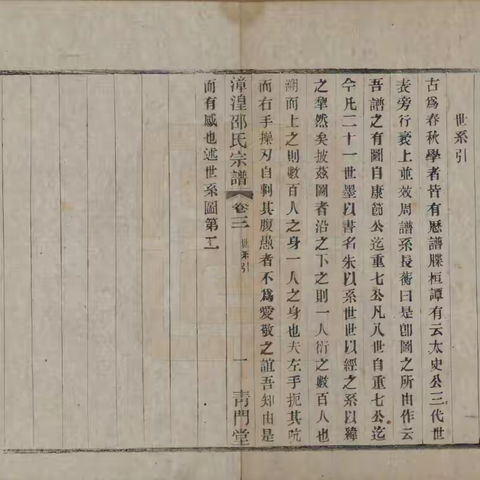 世系引
古爲春秋學者皆有曆譜牒桓譚有云太史公三代世
表旁行衺上並效周譜系長衡曰是卽圖之所由作云
吾譜之有圖自康節公迄重七公凡八世自重七公迄
今凡二十一世墨以書名朱以系世世以經之系以緯
之犂然矣披茲圖者沿之下之則一人衍之數百人也
溯而上之則數百人之身一人之身也夫左手扼其吭
而右手操刃自剚其腹愚者不爲愛敬之誼吾知由是
漳湟邵氏宗譜 卷三 世系引 一 青門堂
而有感也述世系圖第二